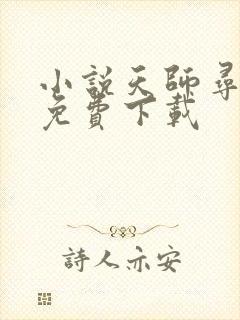 小說天師尋
免費下載
詩人亦安